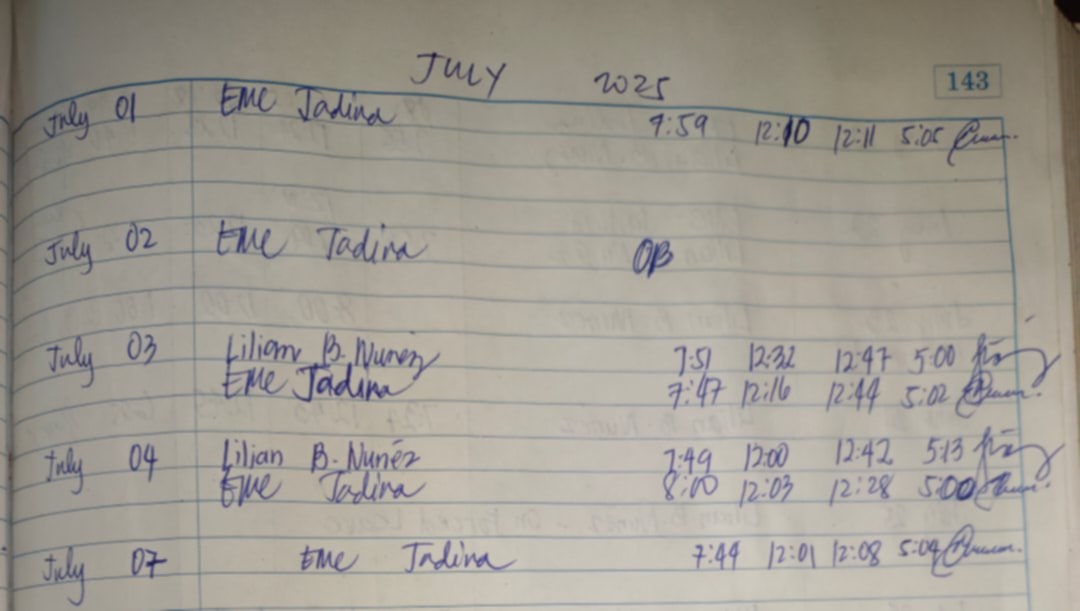 JULY 2025 143
July 01 EMC Jadina 7:59 12:10 12:11 5:05
July 02 EMC Jadina OB
July 03 Lilian B. Nunez 7:51 12:32 12:47 5:00
EMC Jadina 7:47 12:16 12:44 5:02
July 04 Lilian B. Nuñez 7:49 12:00 12:42 5:13
EMC Jadina 8:00 12:03 12:28 5:00
July 07 EMC Jadina 7:44 12:01 12:08 5:04